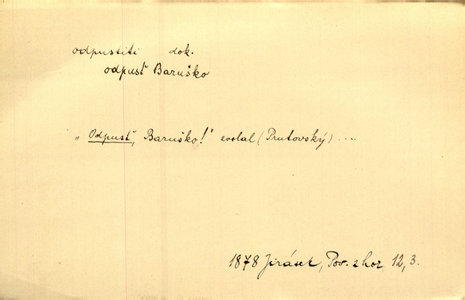 odpustiti dok.
odpusť Baruško
„Odpusť, Baruško!" zvolal (Prutovský) ...
1878 Jirásek, Pov. z hor 12, 3.